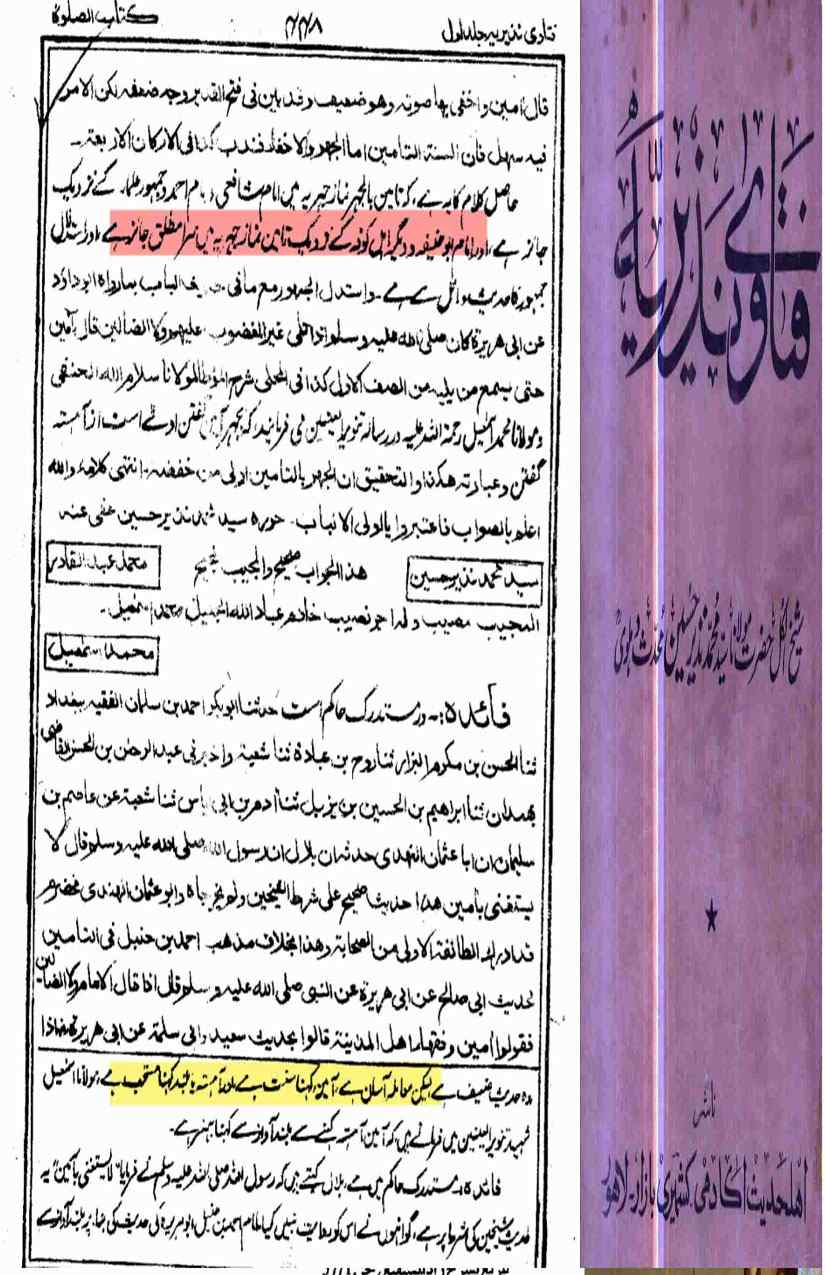 فتاوی نذیریہ جلد اول ۴۴۸ کتاب الصلوٰۃ
قال اٰمین واخفی بھا صوتہ وھو ضعیف وقد بین فی فتح القدیر وجہ ضعفہ لکن الامر
فیہ سھل فان السنۃ التامین اما الجھر والاخفاء فندب کذا فی الارکان الاربعۃ۔
حاصل کلام کا یہ ہے، کہ تامین بالجہر نماز جہریہ میں امام شافعی و امام احمد و جمہور علماء کے نزدیک
جائز ہے، اور امام ابو حنیفہ و دیگر اہل کوفہ کے نزدیک تامین نماز جہریہ میں سراً مطلق جائز ہے، اور استدلال
جمہور کا حدیث وائل سے ہے۔ واستدل الجمھور مع مافی حدیث الباب بمارواہ ابوداؤد
عن ابی ھریرۃ کان صلی اللہ علیہ وسلم اذا تلی غیر المغضوب علیھم ولا الضالین قال اٰمین
حتی یسمع من یلیہ من الصف الاول کذا فی المحلی شرح المؤطا لمولانا سلام اللہ الحنفی
و مولانا محمد اسمٰعیل رحمۃ اللہ علیہ در رسالہ تنویر العینین می فرمایند، کہ بجہر آمین گفتن اولےٰ است از آہستہ
گفتن و عبارتہ ھکذا والتحقیق ان الجھر بالتامین اولی من خفضہ۔ انتھی کلامہ واللہ
اعلم بالصواب فاعتبروا یا اولی الالباب۔ حررہ سید محمد نذیر حسین عفی عنہ
سید محمد نذیر حسین ھذا الجواب صحیح والمجیب نجیح محمد عبد القادر
المجیب مصیب ولہ اجر نصیب خادم عباد اللہ الجلیل محمد اسمٰعیل۔
محمد اسمٰعیل
فائدہ:۔ در مستدرک حاکم است حدثنا ابوبکر احمد بن سلمان الفقیہ ببغداد
ثنا الحسن بن مکرم البزار ثنا روح بن عبادۃ ثنا شعبۃ واخبرنی عبد الرحمٰن بن الحسن القاضی
بھمدان ثنا ابراھیم بن الحسین بن یزیل ثنا اٰدم بن ابی ایاس ثنا شعبۃ عن عاصم بن
سلیمان ان ابا عثمان النھدی حدثہ ان بلال ان رسول اللہ صلی اللہ علیہ وسلم قال لا
یستفنی بامین ھذا حدیث صحیح علی شرط الشیخین ولم یخرجاہ وابو عثمان الھندی مخضرم
قد ادرک الطائفۃ الاولی من الصحابۃ وھذا بخلاف مذھب احمد بن حنبل فی التامین
لحدیث ابی صالح عن ابی ھریرۃ عن النبی صلی اللہ علیہ وسلم قال اذا قال الامام ولا الضالین
فقولوا اٰمین وفقھاء اھل المدینۃ قالوا بحدیث سعید وابی سلمۃ عن ابی ھریرۃ
وہ حدیث ضعیف ہے لیکن معاملہ آسان ہے، آمین کہنا سنت ہے اور آہستہ یا بلند کہنا مستحب ہے، مولانا اسمٰعیل
شہید تنویر العینین میں فرماتے ہیں، کہ آمین آہستہ کہنے سے بلند آواز سے کہنا بہتر ہے۔
فائدہ:۔ مستدرک حاکم میں ہے، بلال کہتے ہیں کہ رسول اللہ صلی اللہ علیہ وسلم نے فرمایا لا یستفنی بآمین یہ
حدیث شیخین کی شرط پر ہے، گو انہوں نے اس کو روایت نہیں کیا امام احمد بن حنبل ابو ہریرہ کی حدیث کی بنا پر بلند آواز سے
فتاویٰ نذیریہ
شیخ الکل حضرت مولانا سید محمد نذیر حسین محدث دہلویؒ
ناشر
اہلحدیث اکادمی کشمیری بازار لاہور